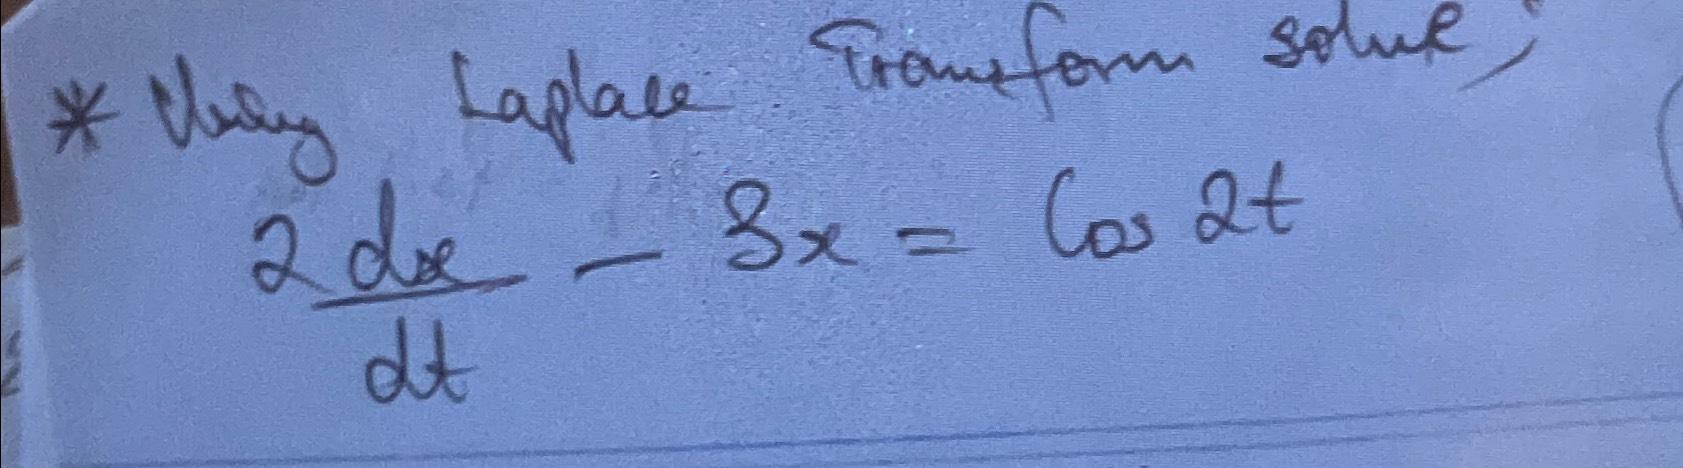 * Using Laplace Transform solve;
2 dx/dt - 3x = Cos 2t